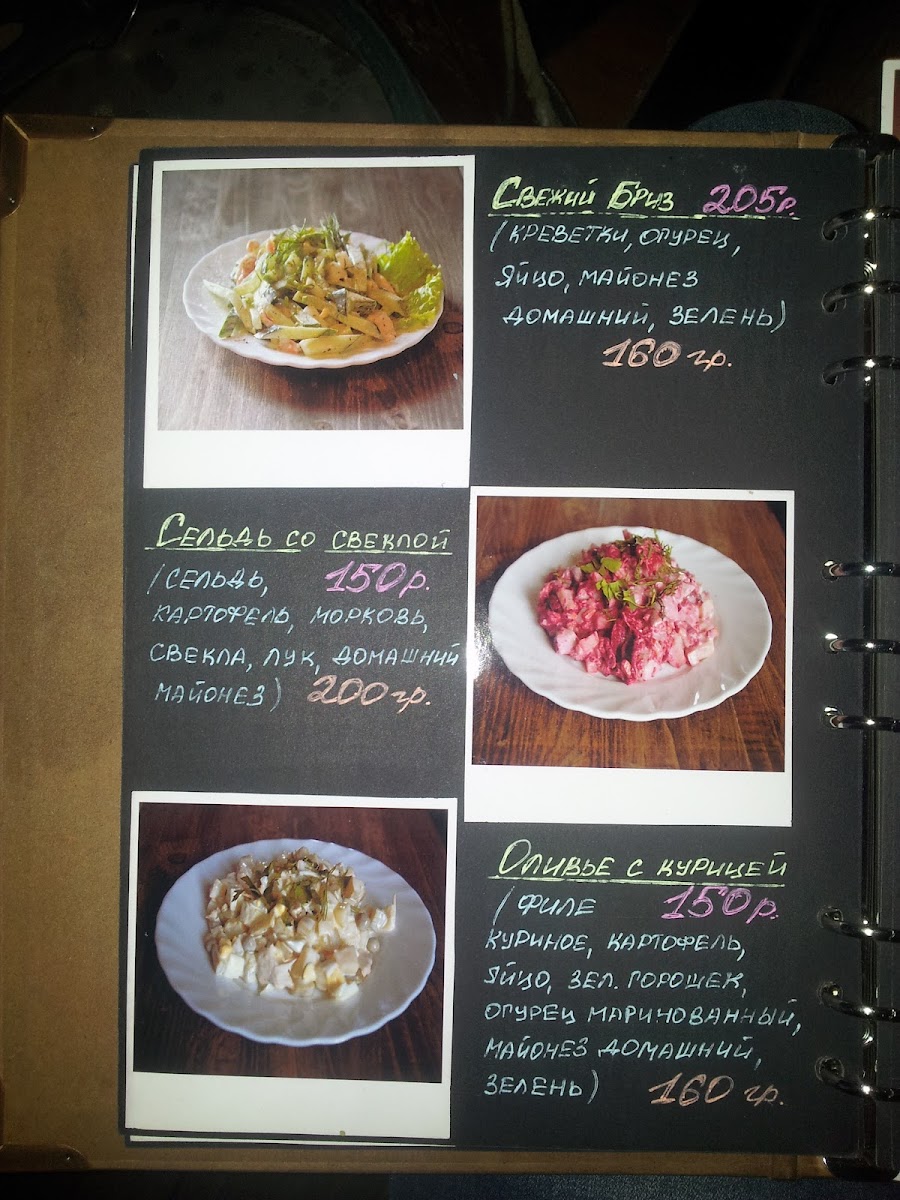 Свежий Бриз 205р.
(креветки, огурец,
яйцо, майонез
домашний, зелень)
160 гр.
Сельдь со свеклой
(сельдь, 150р.
картофель, морковь,
свекла, лук, домашний
майонез) 200 гр.
Оливье с курицей
(филе 150р.
куриное, картофель,
яйцо, зел. горошек,
огурец маринованный,
майонез домашний,
зелень) 160 гр.